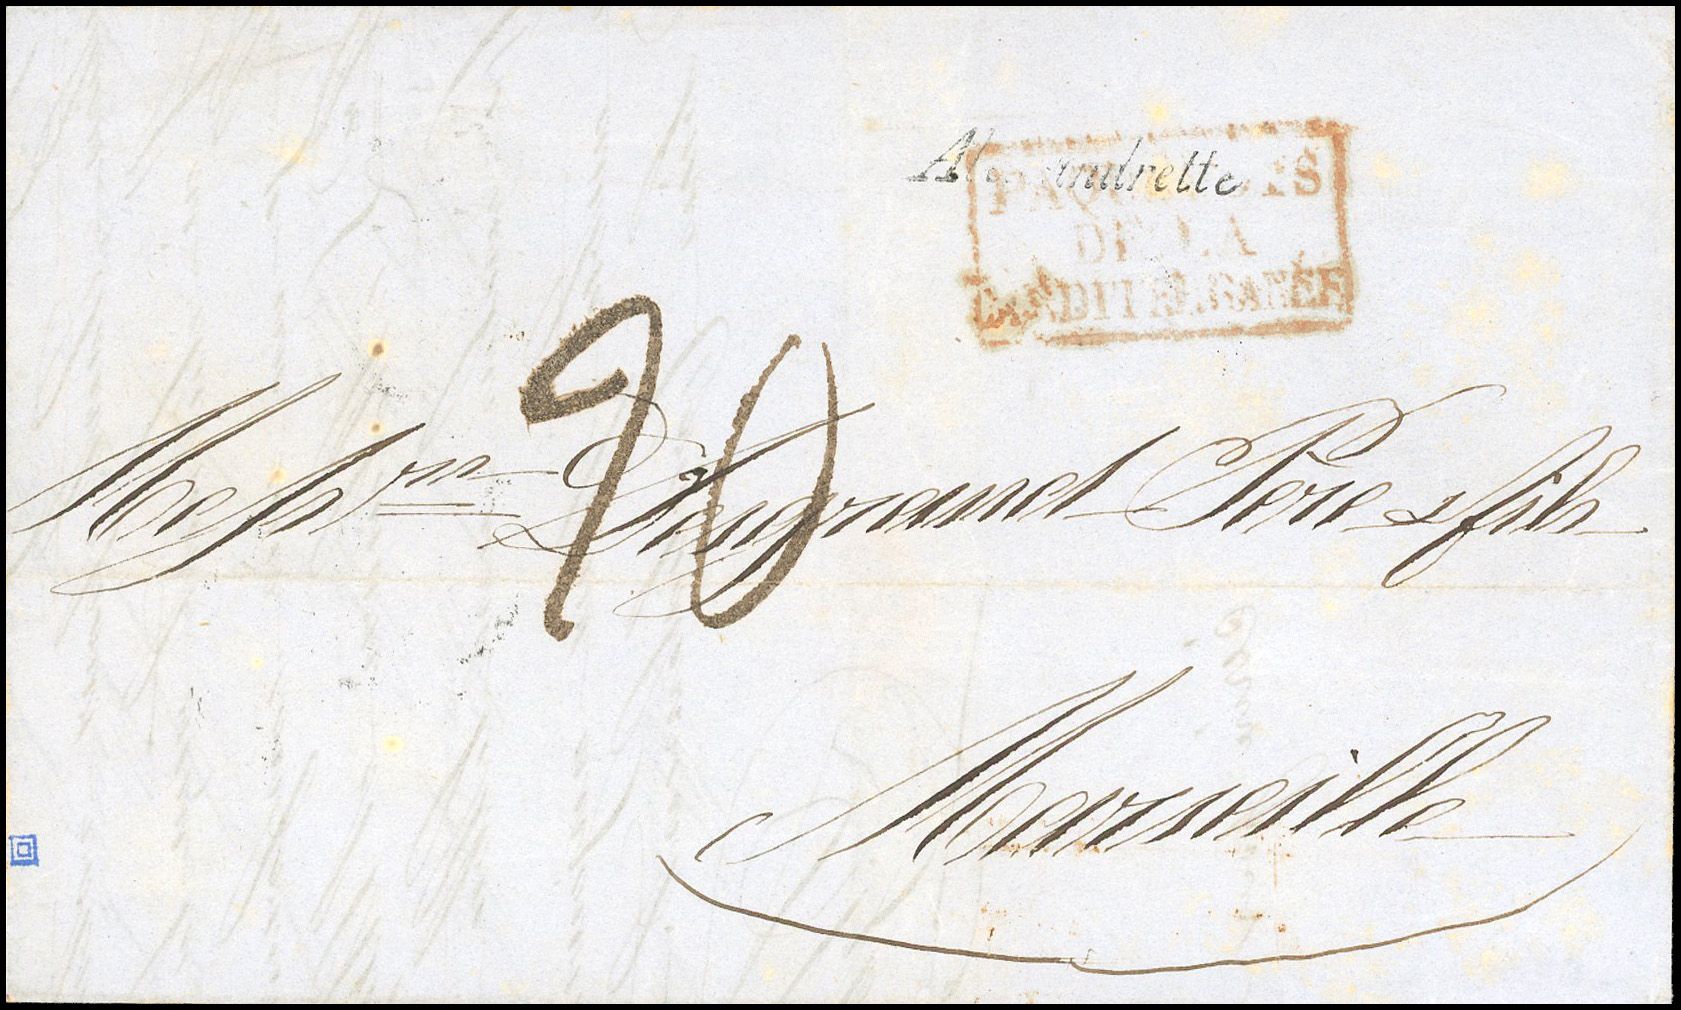 Alexandrette
PAQUEBOTS
DE LA
MÉDITERRANÉE
90
Messrs Desgrand Père & fils
Marseille